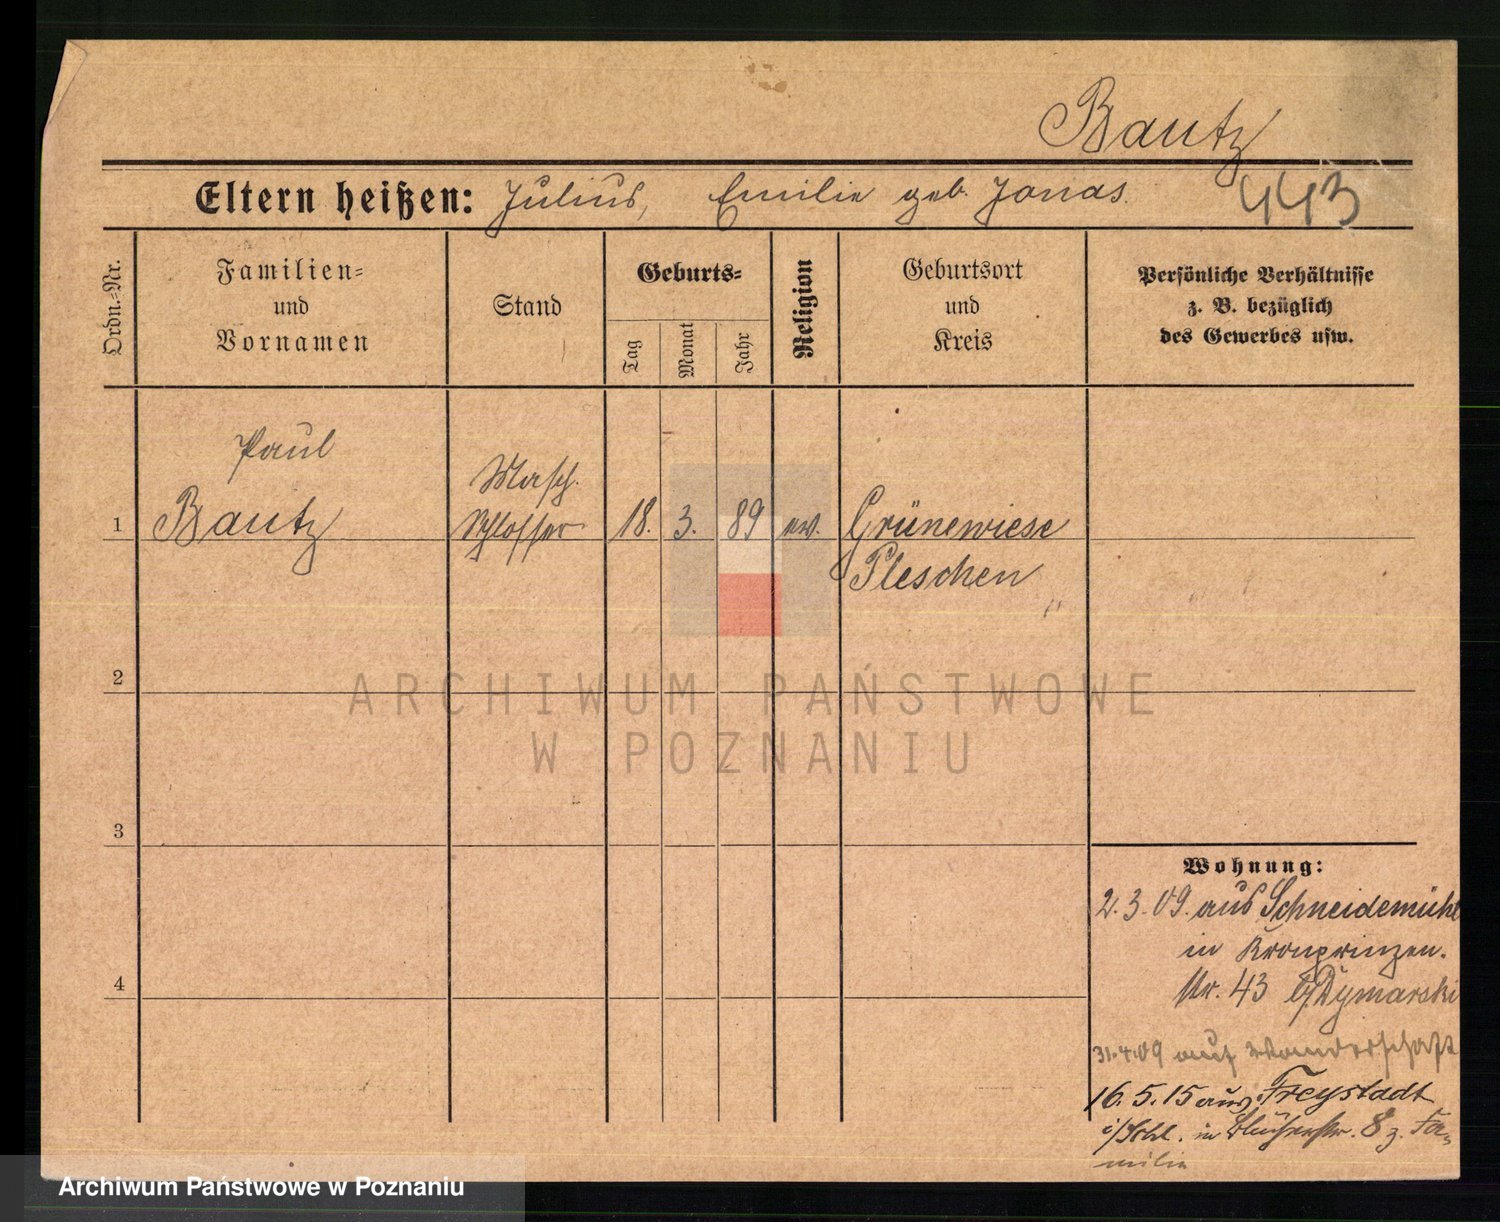 Bautz
443
Eltern heißen: Julius, Emilie geb. Jonas.
Ordn.=Nr.
Familien= und Vornamen
Stand
Geburts=
Tag
Monat
Jahr
Religion
Geburtsort und Kreis
Persönliche Verhältnisse
z. B. bezüglich
des Gewerbes usw.
Paul
Masch.
1 Bautz Schlosser 18. 3. 89 ev. Grünewiese
Pleschen
ARCHIWUM PAŃSTWOWE
W POZNANIU
2
3
4
Wohnung:
2.3.09. aus Schneidemühl
in Kronprinzen.
Nr. 43 b/Dymarski
31.4.09 auf Wanderschaft
16.5.15 aus Freystadt
i/Schl. in Blücherstr. 8 z. Fa=
milie
Archiwum Państwowe w Poznaniu